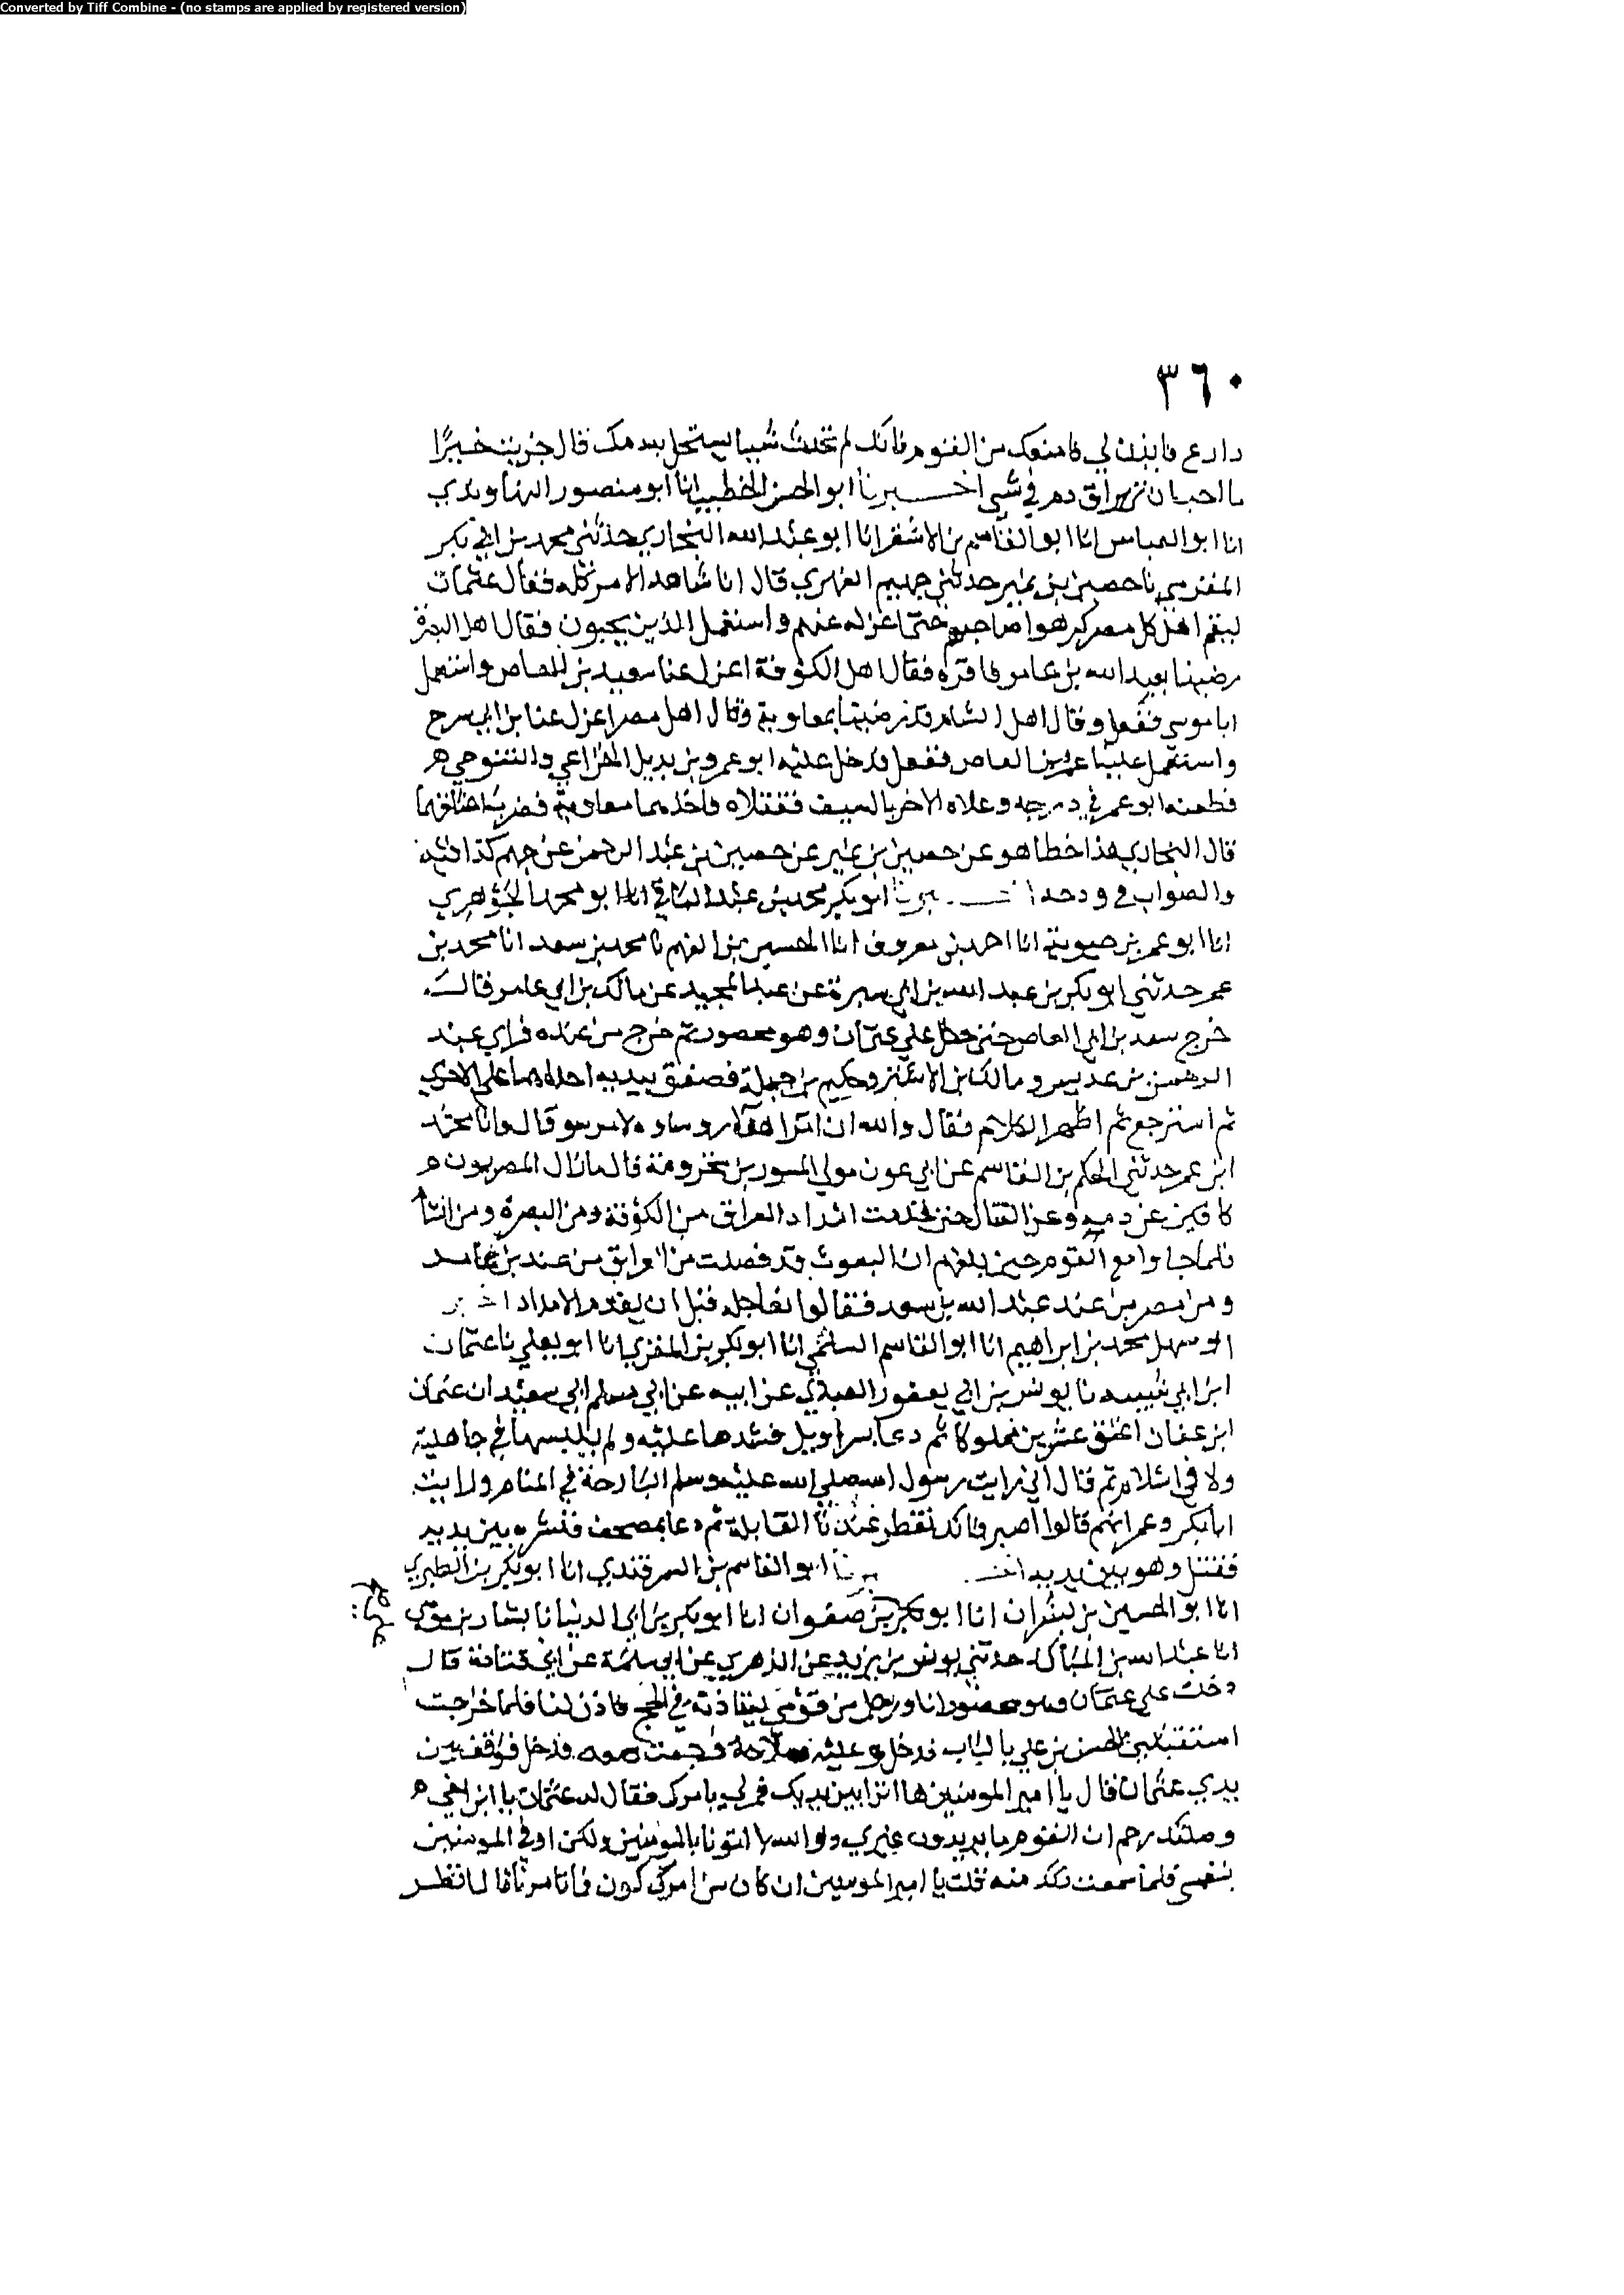 Converted by Tiff Combine - (no stamps are applied by registered version)
٣٦٠
دارع فايذن لي فامنعك من القوم فانك لم تحدث شيا يستحل به دمك قال جزيت خيرا
ما احب ان يهراق دم في شي اخبرنا ابو الحسن الخطيب انا ابو منصور النهاوندي
انا ابو العباس انا ابو القاسم بن الاشقر انا ابو عبد الله البخاري حدثني محمد بن ابي بكر
المقدمي نا حصين بن نمير حدثني جهيم الفهري قال انا شاهد الامر كله فقال عثمان
ليقم اهل كل مصر كرهوا صاحبهم حتى اعزله عنهم واستعمل الذين يحبون فقال اهل البصرة
رضينا بعبد الله بن عامر فاقره فقال اهل الكوفة اعزل عنا سعيد بن العاص واستعمل
ابا موسي ففعل وقال اهل الشام قد رضينا بمعاوية وقال اهل مصر اعزل عنا بن ابي سرح
واستعمل علينا عمرو بن العاص ففعل فدخل عليه ابو عمرو بن بديل الخزاعي والتنوخي
فطعنه ابو عمر في درجه وعلاه الاخر بالسيف فقتلاه فاخذهما معاوية فضرب اعناقهما
قال البخاري هذا خطا هو عن حصين بن نمير عن حصين بن عبد الرحمن عن جهيم كذا فيه
والصواب في ودجه اخبرنا ابو بكر محمد بن عبد الباقي انا ابو محمد الجوهري
انا ابو عمر بن حيوية انا احمد بن معروف انا الحسين بن الفهم نا محمد بن سعد انا محمد بن
عمر حدثني ابو بكر بن عبد الله بن ابي سبرة عن عبد المجيد عن مالك بن ابي عامر قال
خرج سعد بن ابي العاص حتى دخل علي عثمان وهو محصور ثم خرج من عنده فراي عبد
الرحمن بن عديس ومالك بن الاشتر وحكيم بن جبلة فصفق بيديه احداهما على الاخري
ثم استرجع ثم اظهر الكلام فقال والله ان امرا هؤلاء روساوه لامر سو قال وانا محمد
ابن عمر حدثني الحكم بن القاسم عن ابي عون مولي المسور بن مخرومة قال ما زال المصريون
كافين عن دمه وعن القتال حتى قدمت امداد العراق من الكوفة ومن البصرة ومن الشام
فلما جاوا مع القوم حين بلغهم ان البعوث قد فصلت من العراق من عند بن عامر
ومن مصر من عند عبد الله بن سعد فقالوا نعاجله قبل ان يقدم الامداد اخبرنا
ابو سهل محمد بن ابراهيم انا ابو القاسم السلمي انا ابو بكر بن المقري انا ابو يعلي نا عثمان
ابن ابي شيبه نا يونس بن ابي يعفور العبدي عن ابيه عن ابي مسلم ابي سعيد ان عثمان
ابن عفان اعتق عشرين مملوكا ثم دعا بسراويل فشدها عليه ولم يلبسها في جاهلية
ولا في اسلام ثم قال اني رايت رسول الله صلى الله عليه وسلم البارحة في المنام ورايت
ابا بكر وعمر انهم قالوا اصبر فانك تفطر عندنا القابلة ثم دعا بمصحف فنشره بين يديه
فقتل وهو بين يديه اخبرنا ابو القاسم بن السمرقندي انا ابو بكر بن الطبري
انا ابو الحسين بن بشران انا ابو بكر بن صفوان انا ابو بكر بن ابي الدنيا نا بشار بن موسى
انا عبد الله بن المبارك حدثني يونس بن يزيد عن الزهري عن ابي سلمة عن ابي قتادة قال
دخلت على عثمان وهو محصور انا ورجل من قومي نستاذنه في الحج فاذن لنا فلما خرجت
استقبلني الحسن بن علي بالباب فدخل وعليه سلاحه فرجعت معه فدخل فوقف بين
يدي عثمان فقال يا امير المومنين ها انذا بين يديك فمرني بامرك فقال له عثمان يا ابن اخي
وصلتك رحم ان القوم ما يريدون غيري ووالله لا اتوقا بالمومنين ولكن اوقي المومنين
بنفسي فلما سمعت ذلك منه قلت يا امير المومنين ان كان من امرك كون فما تامرنا قال انظر